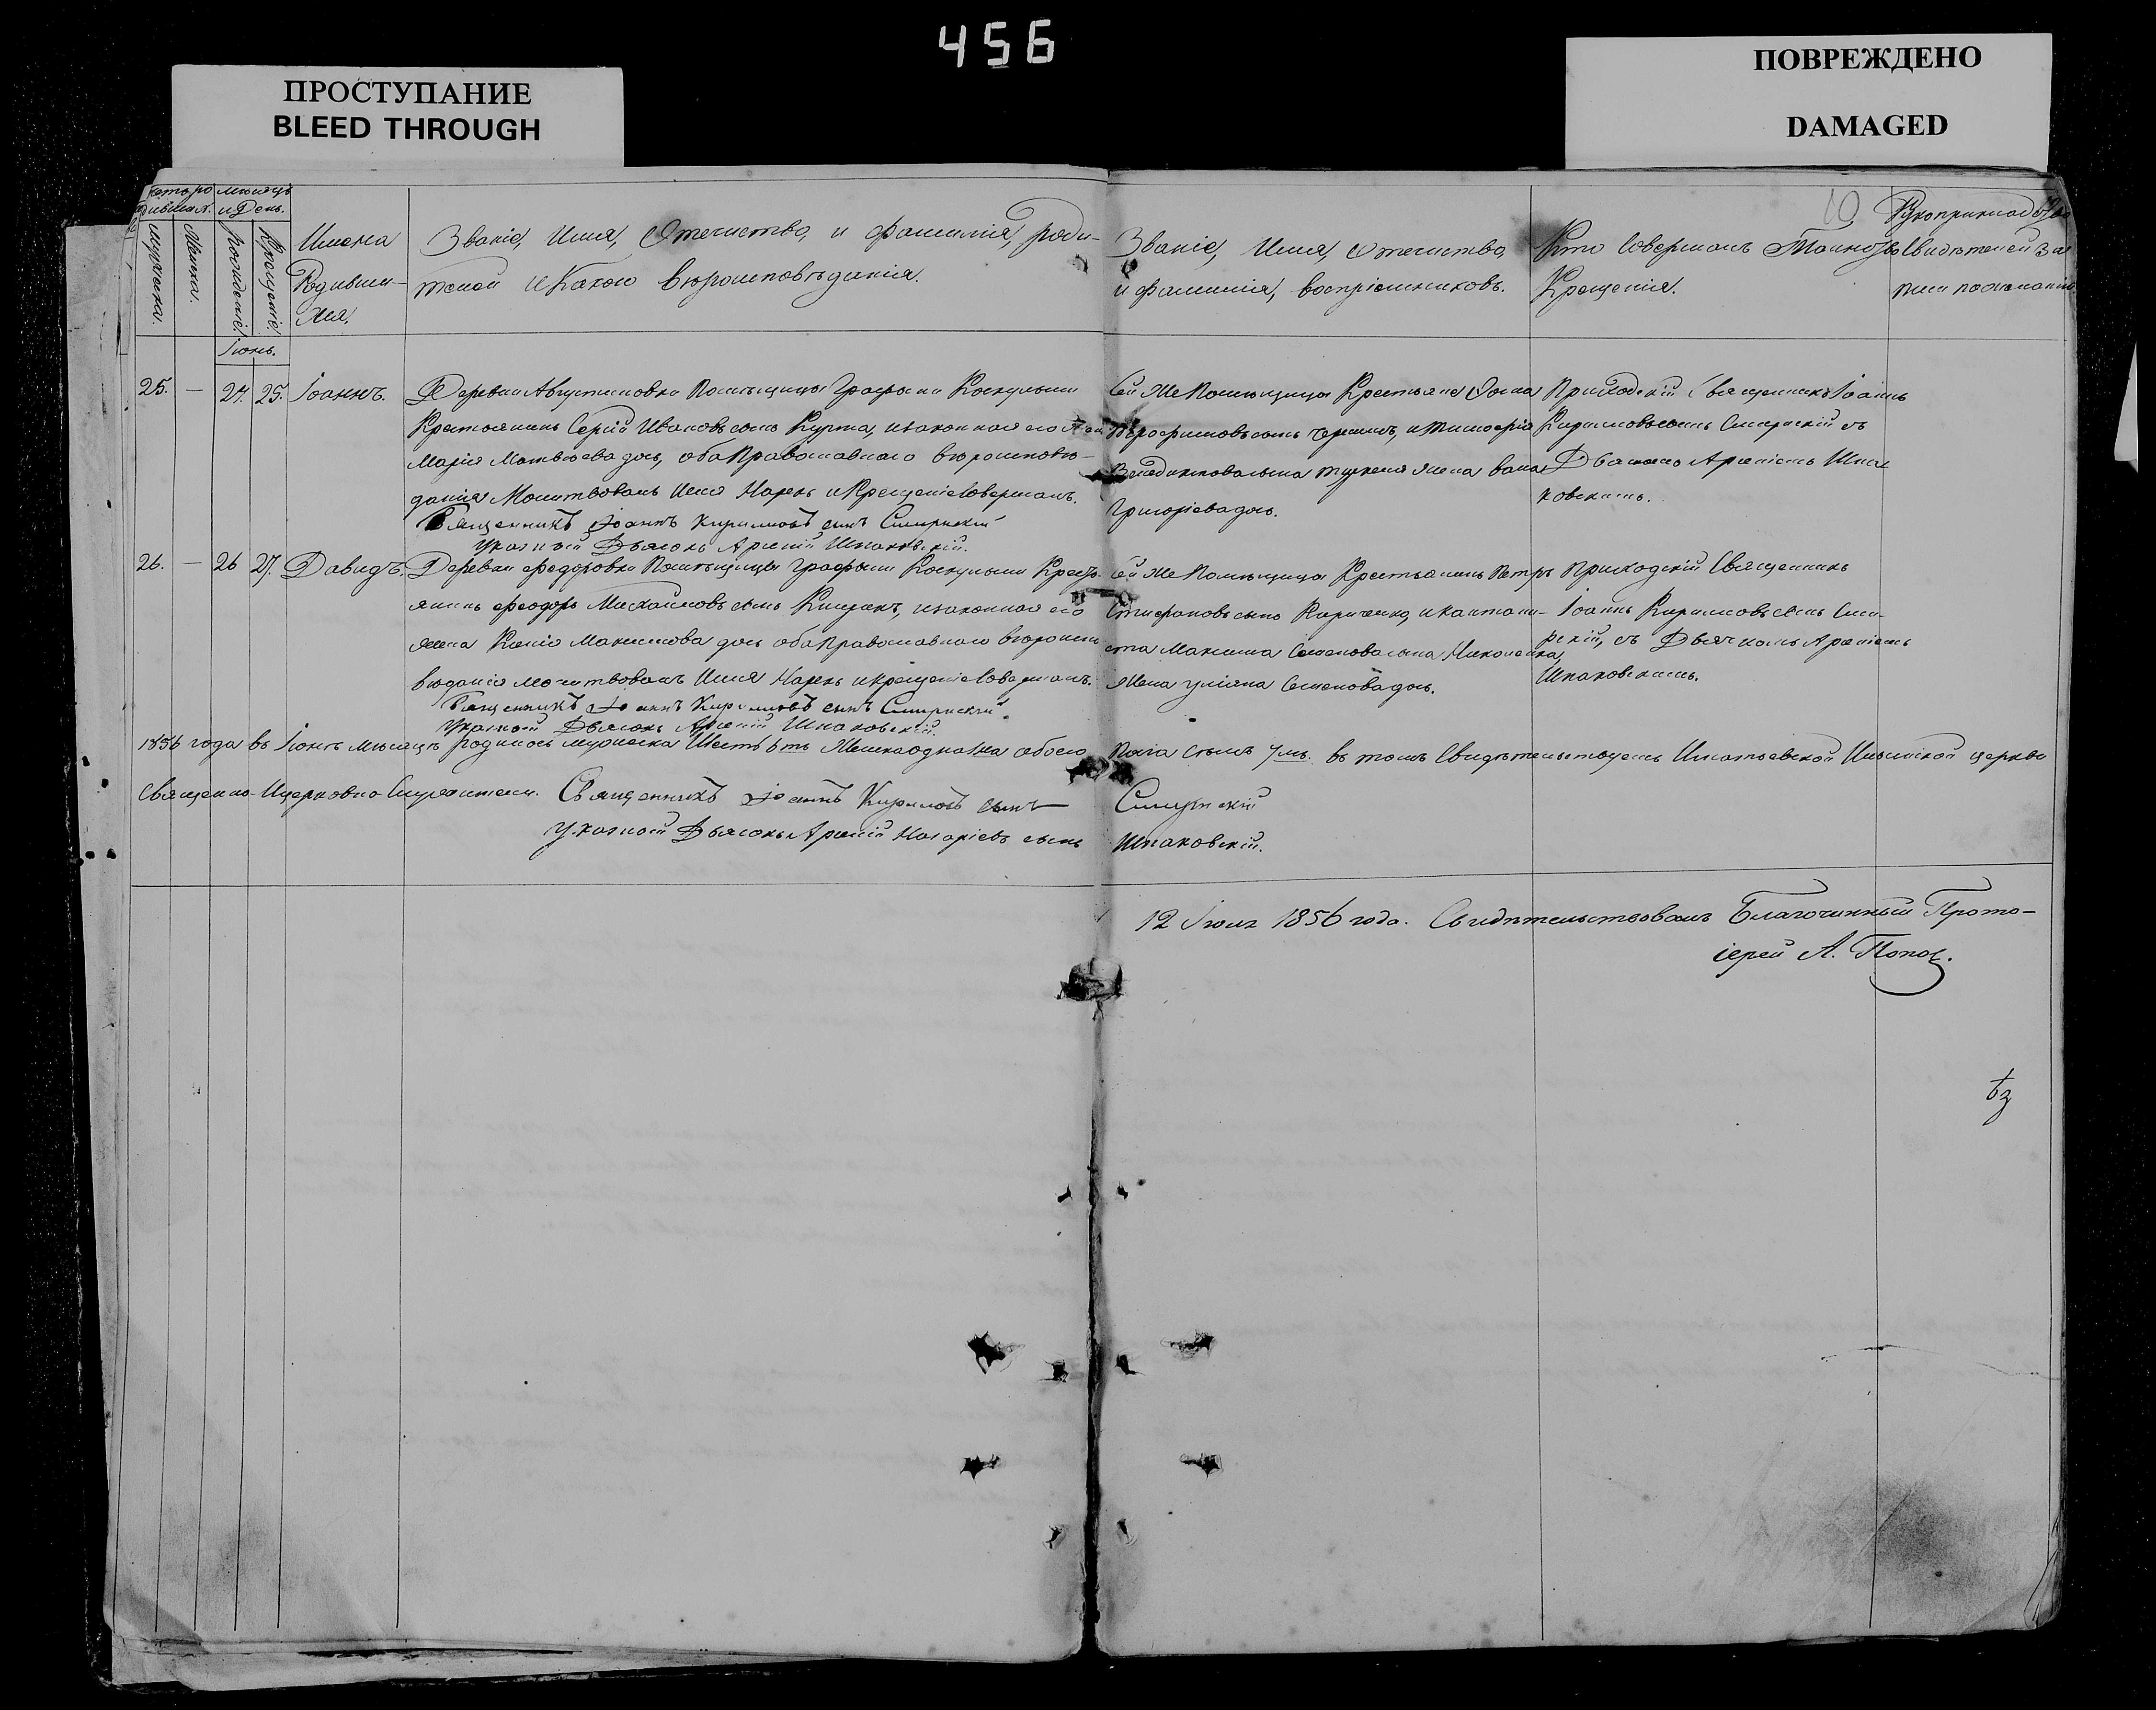 456
ПРОСТУПАНИЕ
BLEED THROUGH
ПОВРЕЖДЕНО
DAMAGED
мѣсяцъ
и День.
Мужеска.
Женска.
рожденіе.
Крещеніе.
Имена
Родивши-
хся.
Званіе, Имя, Отечество, и фамилія, роди-
телей и Какого вѣроисповѣданія.
Званіе, Имя, Отечество,
и фамилія, воспріемниковъ.
Кто Совершалъ Таинство
Крещенія.
Рукоприкладство
Свидѣтелей За
писи по желанію.
Іюнь.
25. — 24. 25. Іоаннъ.
Деревни Августиновки Помѣщицы Графыни
Крестьянинъ Сергій Ивановъ сынъ Курта, изаконная его
Марія Матвѣева дочь, оба Православнаго вѣроисповѣ-
данія Молитвовалъ Имя Нарекъ и Крещеніе Совершалъ.
Священникъ Іоаннъ Кириловъ сынъ
Указный Дьячокъ Арсеній Шпаковскій.
Сей Же Помѣщицы Крестьяне
сынъ
жена
Григоріева дочь.
Приходскій Священникъ Іоаннъ
Кириловъ сынъ съ
Дьячкомъ Арсеніемъ Шпа
ковскимъ.
26. — 26 27. Давидъ.
Деревни Федоровки Помѣщицы Графыни Крестья-
янинъ Феодоръ Михайловъ сынъ изаконная его
жена Ксенія Максимова дочь оба Православнаго вѣроиспо
вѣданія молитвовалъ Имя Нарекъ и крещеніе Совершалъ.
Священникъ Іоаннъ Кириловъ сынъ
Указной Дьячокъ Арсеній Шпаковскій.
Сей Же Помѣщицы Крестьянинъ Петръ
Стефановъ сынъ Кириченко, и
Максима Семенова сына Николенка,
Жена Уліяна Семенова дочь.
Приходскій Священникъ
Іоаннъ Кириловъ сынъ
съ Дьячкомъ Арсеніемъ
Шпаковскимъ.
1856 года въ Іюнѣ мѣсяцѣ родилось мужеска Шесть 6ть Женска одна 1на обоего пола Семь 7мь. въ томъ Свидѣтельствуемъ Игнатьевской Ильинской церкви
Священно-Ицерковно Служители. Священникъ Іоаннъ Кириловъ сынъ
Указной Дьячокъ Арсеній Назаріевъ сынъ Шпаковскій.
12 Іюля 1856 года. Свидѣтельствовалъ Благочинный Прото-
іерей А. Поповъ.